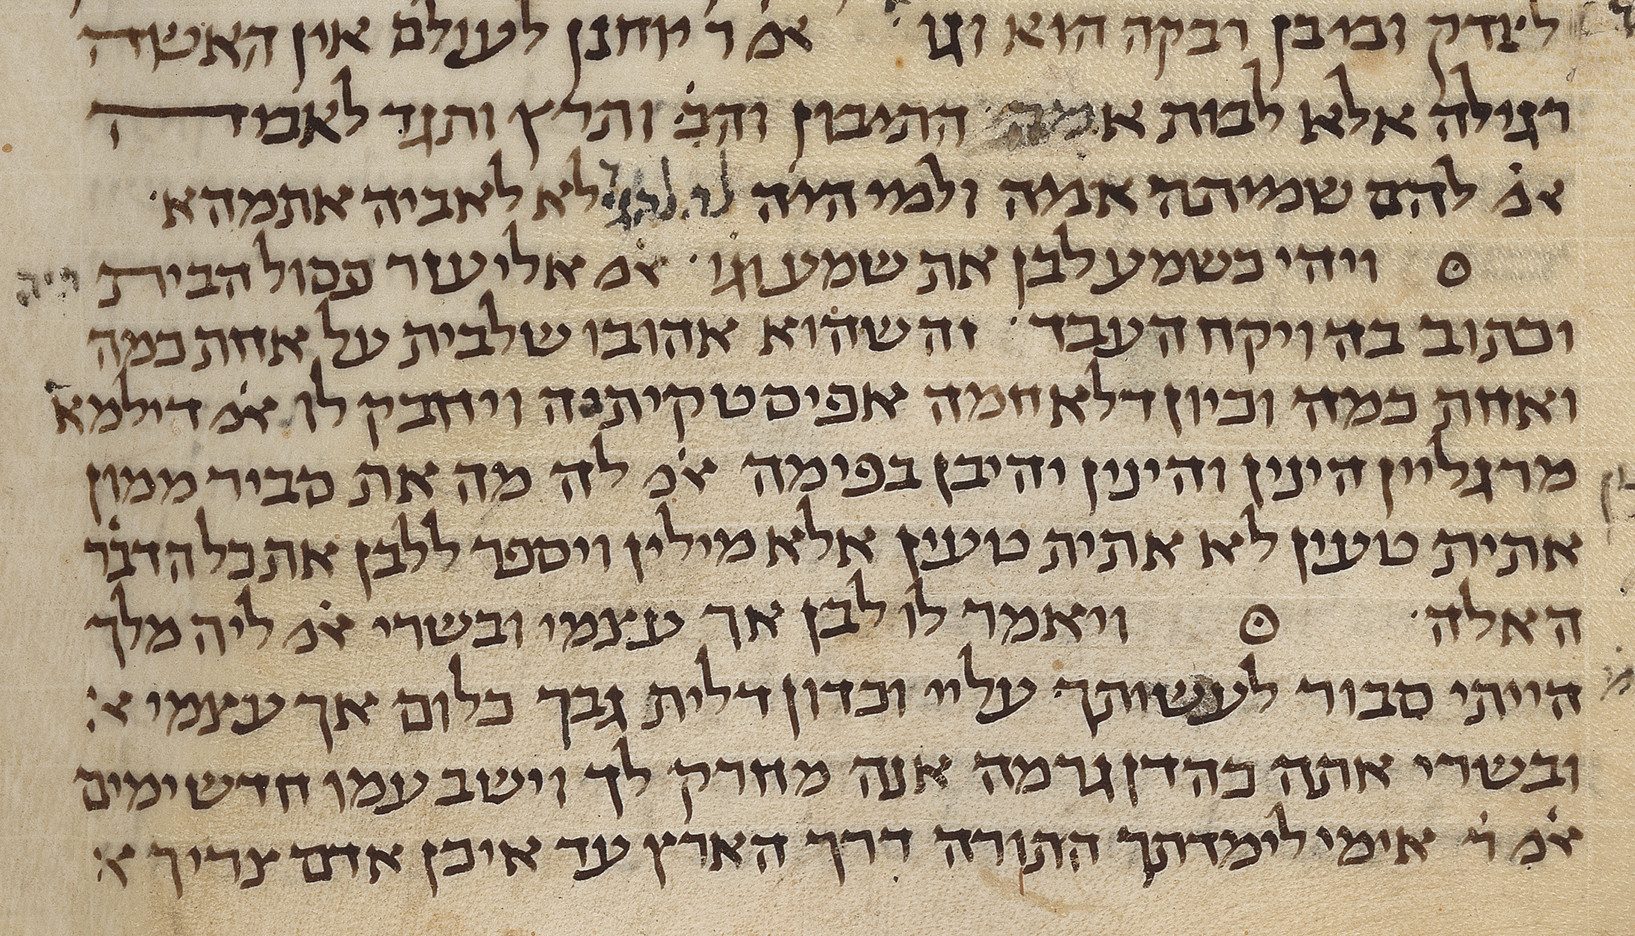 לצדק ובו בן רבקה הוא וגו׳ א׳מ ר׳ יוחנן לעולם אין האשה
רגילה אלא לבית אמה׳ התיבון והכ׳ ותרץ ותגד לאביה
א׳מ להם שמיתה אמה ולמי היה לה להגיד לא לאביה אתמהא׳
ויהי כשמע לבן את שמע וגו׳ א׳מ אליעזר פסול הבית היה
וכתוב בה ויקח העבד׳ זה שהוא אהובו שלבית על אחת כמה
ואחת כמה וכיון דלא חמה אפיסטקיתה ויחבק לו א׳מ דילמא
מרגליין הינין והינין יהיבן בפימה א׳מ לה מה את סביר ממון
אתית טעין לא אתית טעין אלא מילין ויספר ללבן את כל הדבר׳
האלה׳ ויאמר לו לבן אך עצמי ובשרי א׳מ ליה מלך
הייתי סבור לעשותך עליי וכדון דלית גבך כלום אך עצמי א׳
ובשרי אתה כהדן גרמה אנה מחרק לך וישב עמו חדש ימים
א׳מ ר׳ אימי לימדתך התורה דרך הארץ עד איכן אדם צריך א׳